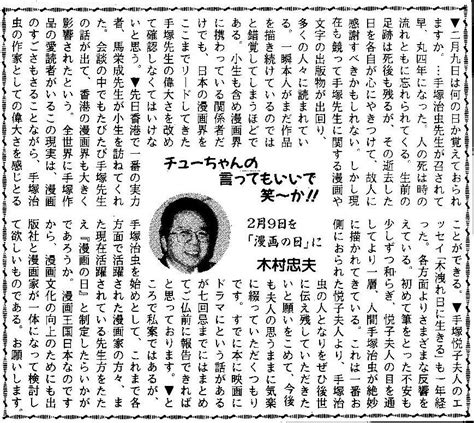 チューちゃんの
言ってもいいで
笑〜か!!
2月9日を
「漫画の日」に
木村忠夫
▼二月九日は何の日か覚えておられ
ますか。…手塚治虫先生が召されて
早、丸四年になった。人の死は時の
流れともに忘れられてくる。生前の
足跡は死後も残るが、その逝去した
日を各自が心にやきつけて、故人に
感謝すべきかもしれない。しかし現
在も競って手塚先生に関する漫画や
文字の出版物が出回り、
多くの人々に読まれてい
る。一瞬本人がまだ作品
を描き続けているのでは
と錯覚してしまうほどで
ある。小生も含め漫画界
に携わっている関係者だ
けでも、日本の漫画界を
ここまでリードしてきた
手塚先生の偉大さを改め
て確認しなくてはいけな
いと思う。▼先日香港で一番の実力
者、馬栄成先生が小生を訪ねてくれ
た。会談の中でもたびたび手塚先生
の話が出て、香港の漫画界も大きく
影響されたという。全世界に手塚作
品の愛読者がいるこの現実は、漫画
のすごさもさることながら、手塚治
虫の作家としての偉大さを感じとる
ことができる。▼手塚悦子夫人のエ
ッセイ「木洩れ日に生きる」も一年経
った。各方面よりさまざまな反響を
えている。初めて筆をとった不安も
少しずつ和らぎ、悦子夫人の目を通
してより一層、人間手塚治虫が絶妙
に描かれてきている。これは一番お
側におられた悦子夫人より、手塚治
虫の人となりをぜひ後世
に伝え残していただきた
いと願いをこめて、今後
も夫人の思うままに気楽
に綴っていただくつもり
です。すでに本に映画に
ドラマにという話がある
が七回忌までにはまとめ
てご仏前に報告できれば
と思っております。▼と
ころで私案ではあるが、
手塚治虫を始めとして、これまで各
方面で活躍された漫画家の方々、ま
た現在活躍されている先生方をたた
え『漫画の日』と制定したらいかが
であろうか。漫画王国日本なのです
から、漫画文化の向上のためにも出
版社と漫画家が一体になって検討し
て欲しいものである。お願いします。